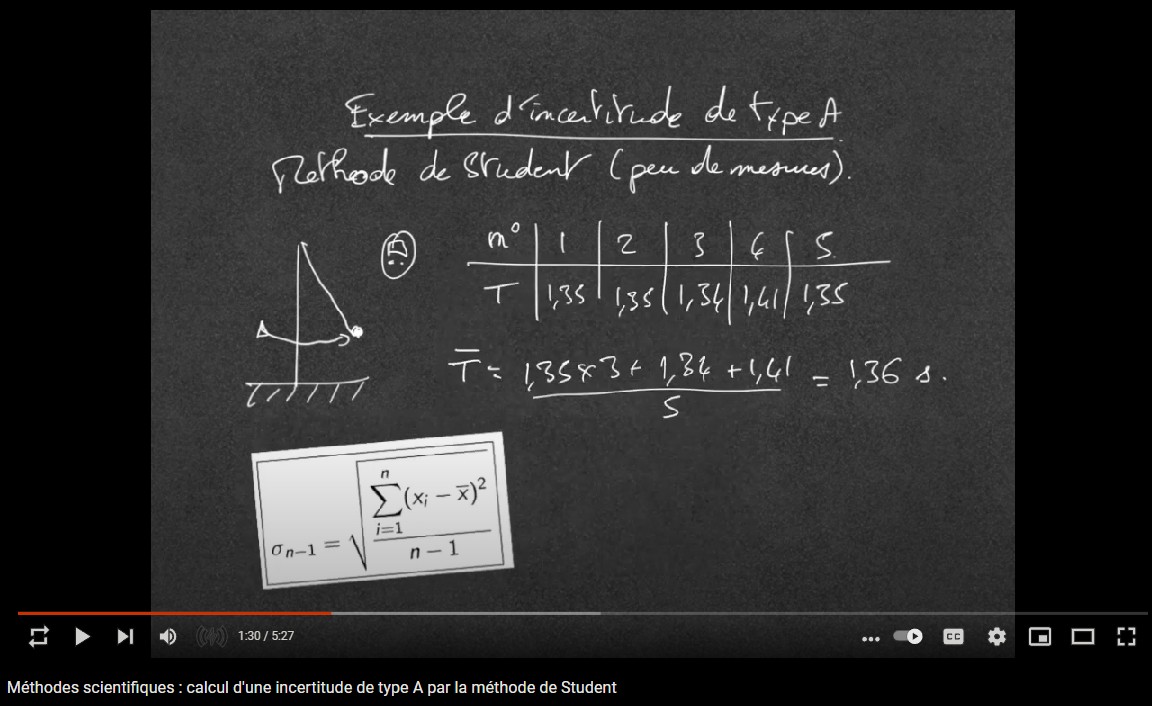 Exemple d'incertitude de type A
Méthode de Student (peu de mesures).
n° 1 2 3 4 5
T 1,35 1,35 1,34 1,41 1,35
T̅ = (1,35 × 3 + 1,34 + 1,41) / 5 = 1,36 s.
σₙ₋₁ = √(∑ᵢ₌₁ⁿ (xᵢ − x̅)² / (n − 1))
1:30 / 5:27
CC
Méthodes scientifiques : calcul d'une incertitude de type A par la méthode de Student